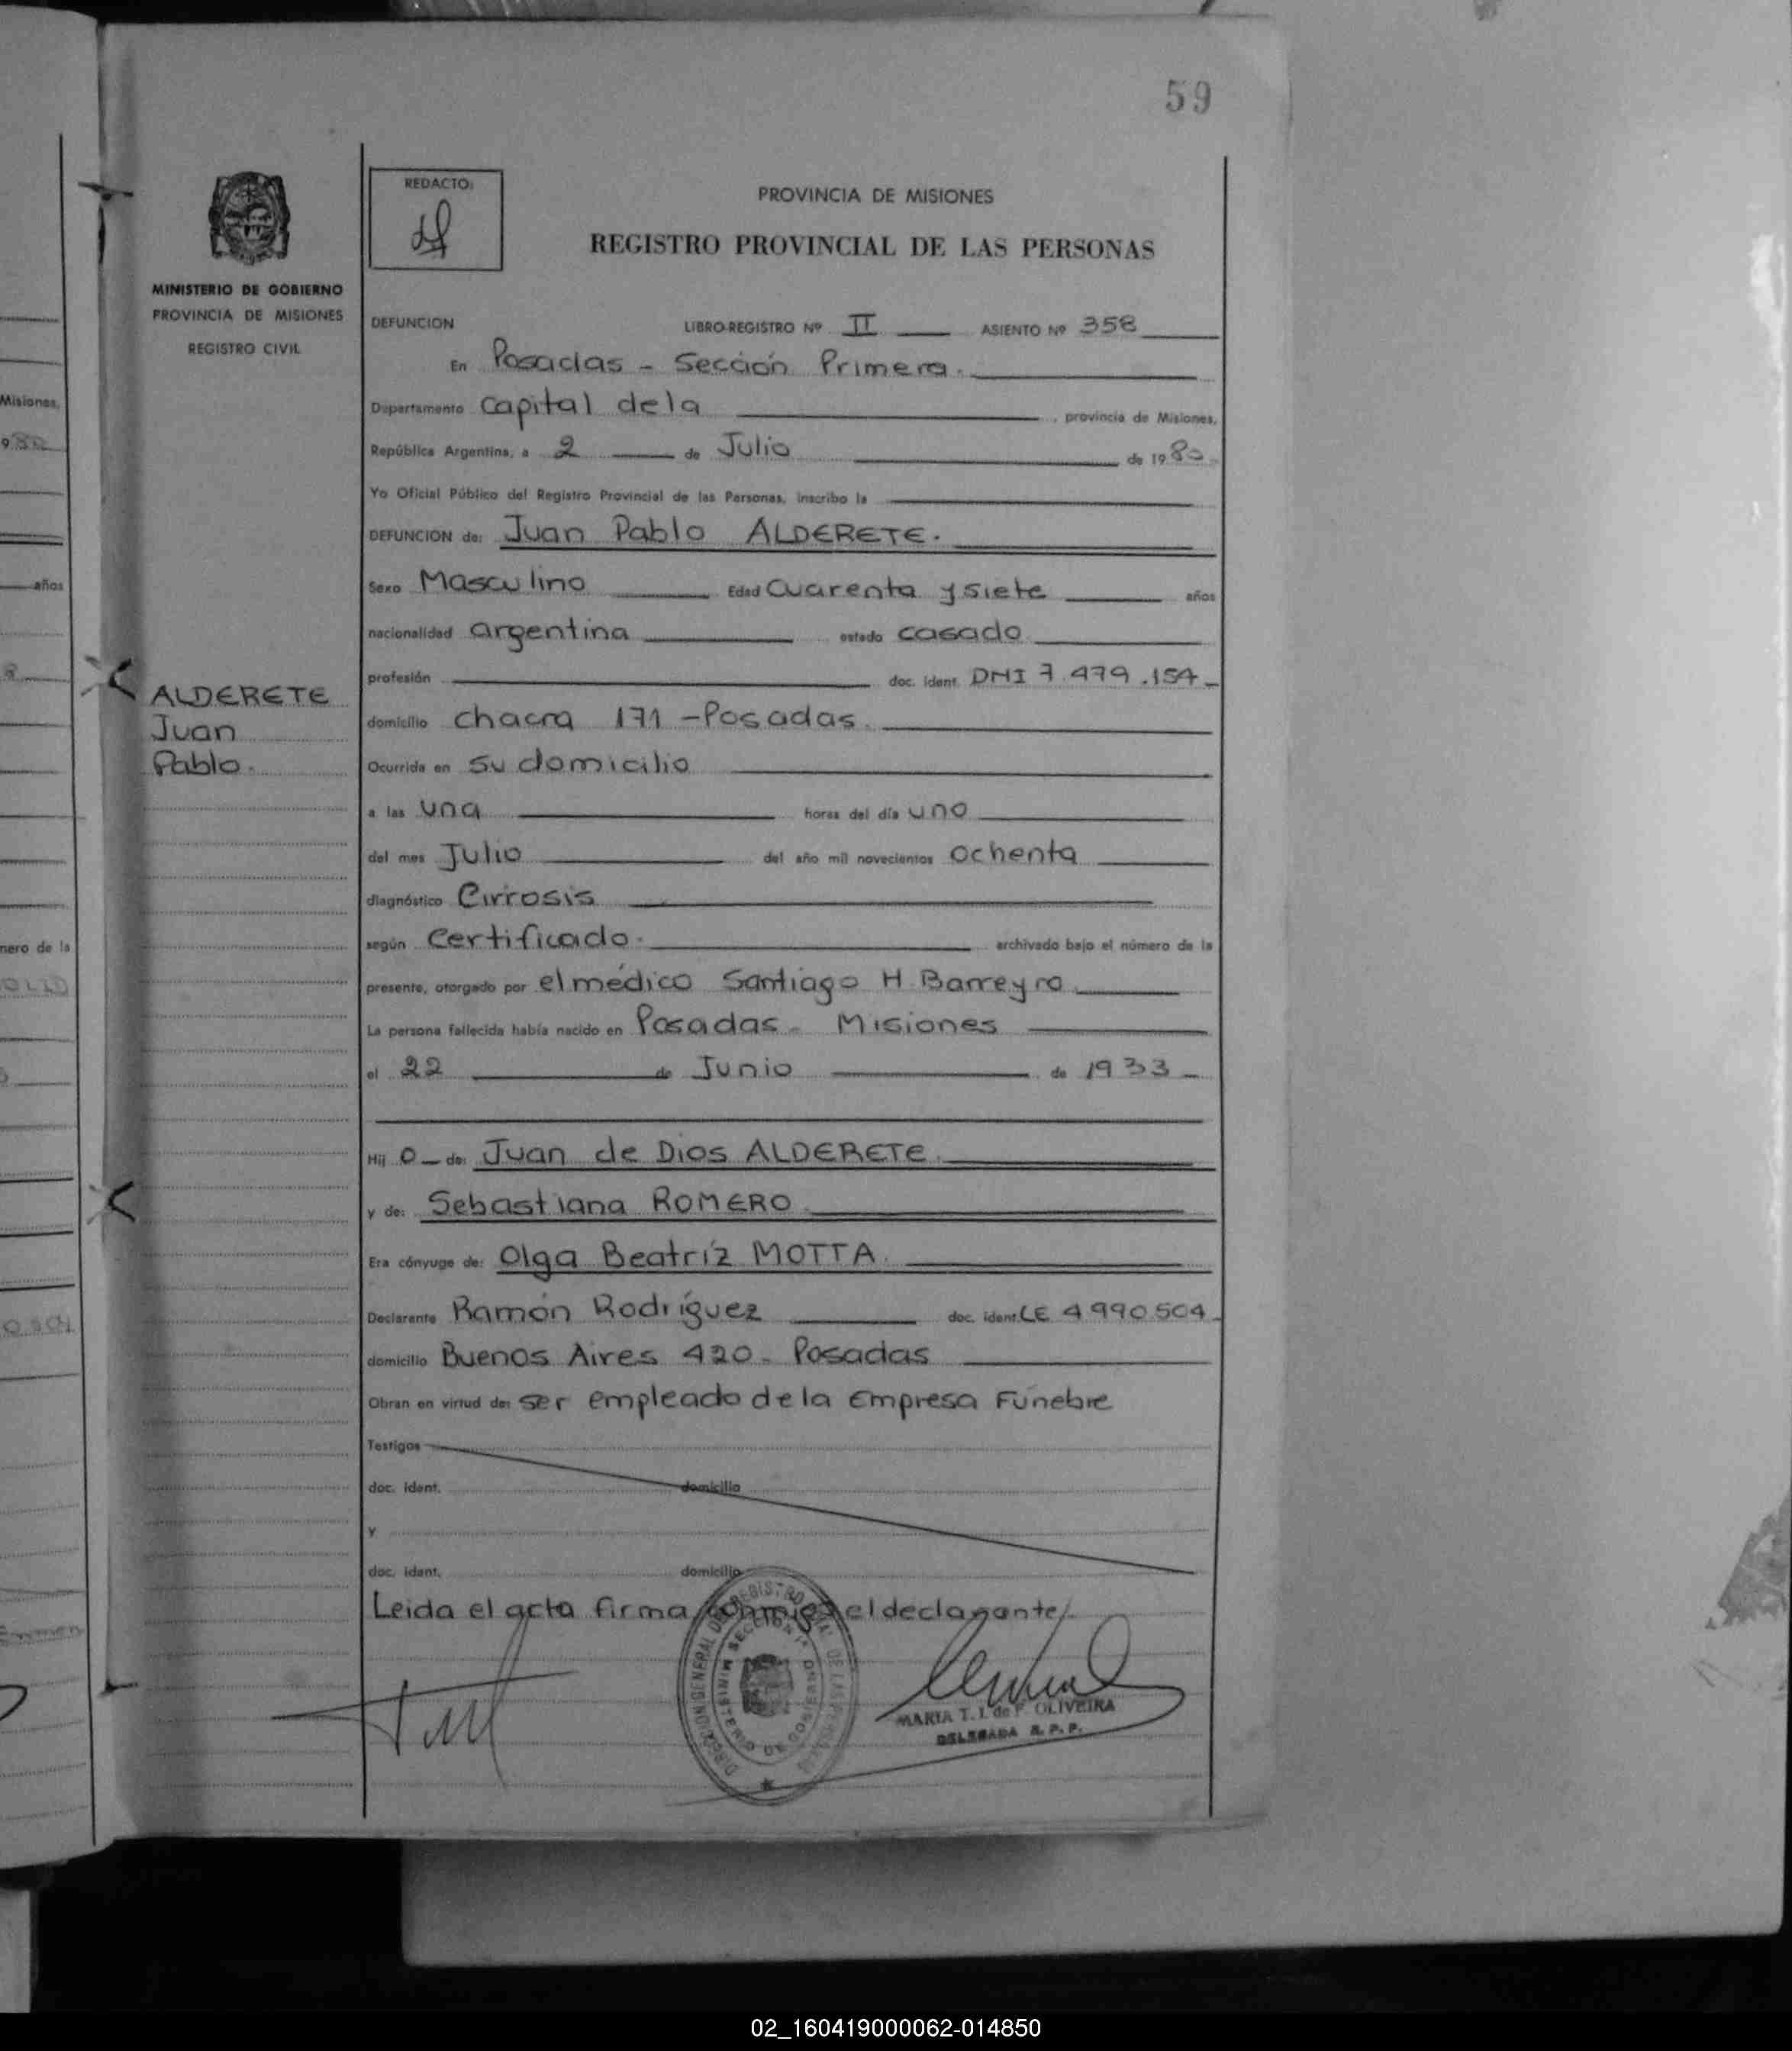 59
MINISTERIO DE GOBIERNO
PROVINCIA DE MISIONES
REGISTRO CIVIL
REDACTO:
PROVINCIA DE MISIONES
REGISTRO PROVINCIAL DE LAS PERSONAS
DEFUNCION LIBRO-REGISTRO Nº II ASIENTO Nº 358
En Posadas - Sección Primera.
Departamento Capital de la , provincia de Misiones,
República Argentina, a 2 de Julio de 1980
Yo Oficial Público del Registro Provincial de las Personas, inscribo la
DEFUNCION de: Juan Pablo ALDERETE.
Sexo Masculino Edad Cuarenta y siete años
nacionalidad argentina estado casado
profesión doc. ident. DNI 7.479.154
ALDERETE
Juan
Pablo.
domicilio chacra 171 - Posadas.
Ocurrida en su domicilio
a las una horas del día uno
del mes Julio del año mil novecientos ochenta
diagnóstico Cirrosis
según Certificado. archivado bajo el número de la
presente, otorgado por el médico Santiago H. Barreyro
La persona fallecida había nacido en Posadas - Misiones
el 22 de Junio de 1933
Hij o de: Juan de Dios ALDERETE.
y de: Sebastiana ROMERO
Era cónyuge de: Olga Beatríz MOTTA.
Declarante Ramón Rodríguez doc. ident. LE 4990504
domicilio Buenos Aires 420 - Posadas
Obran en virtud de: ser empleado de la Empresa Fúnebre
Testigos
doc. ident. domicilio
y
doc. ident. domicilio
Leida el acta firma conmigo el declarante
DIRECCION GENERAL DEL REGISTRO DE LAS PERSONAS
MINISTERIO DE GOBIERNO
SECCION 1ª
MARIA T. I. de F. OLIVEIRA
DELEGADA R. P. P.
Misiones,
1980
años
número de la
02_160419000062-014850